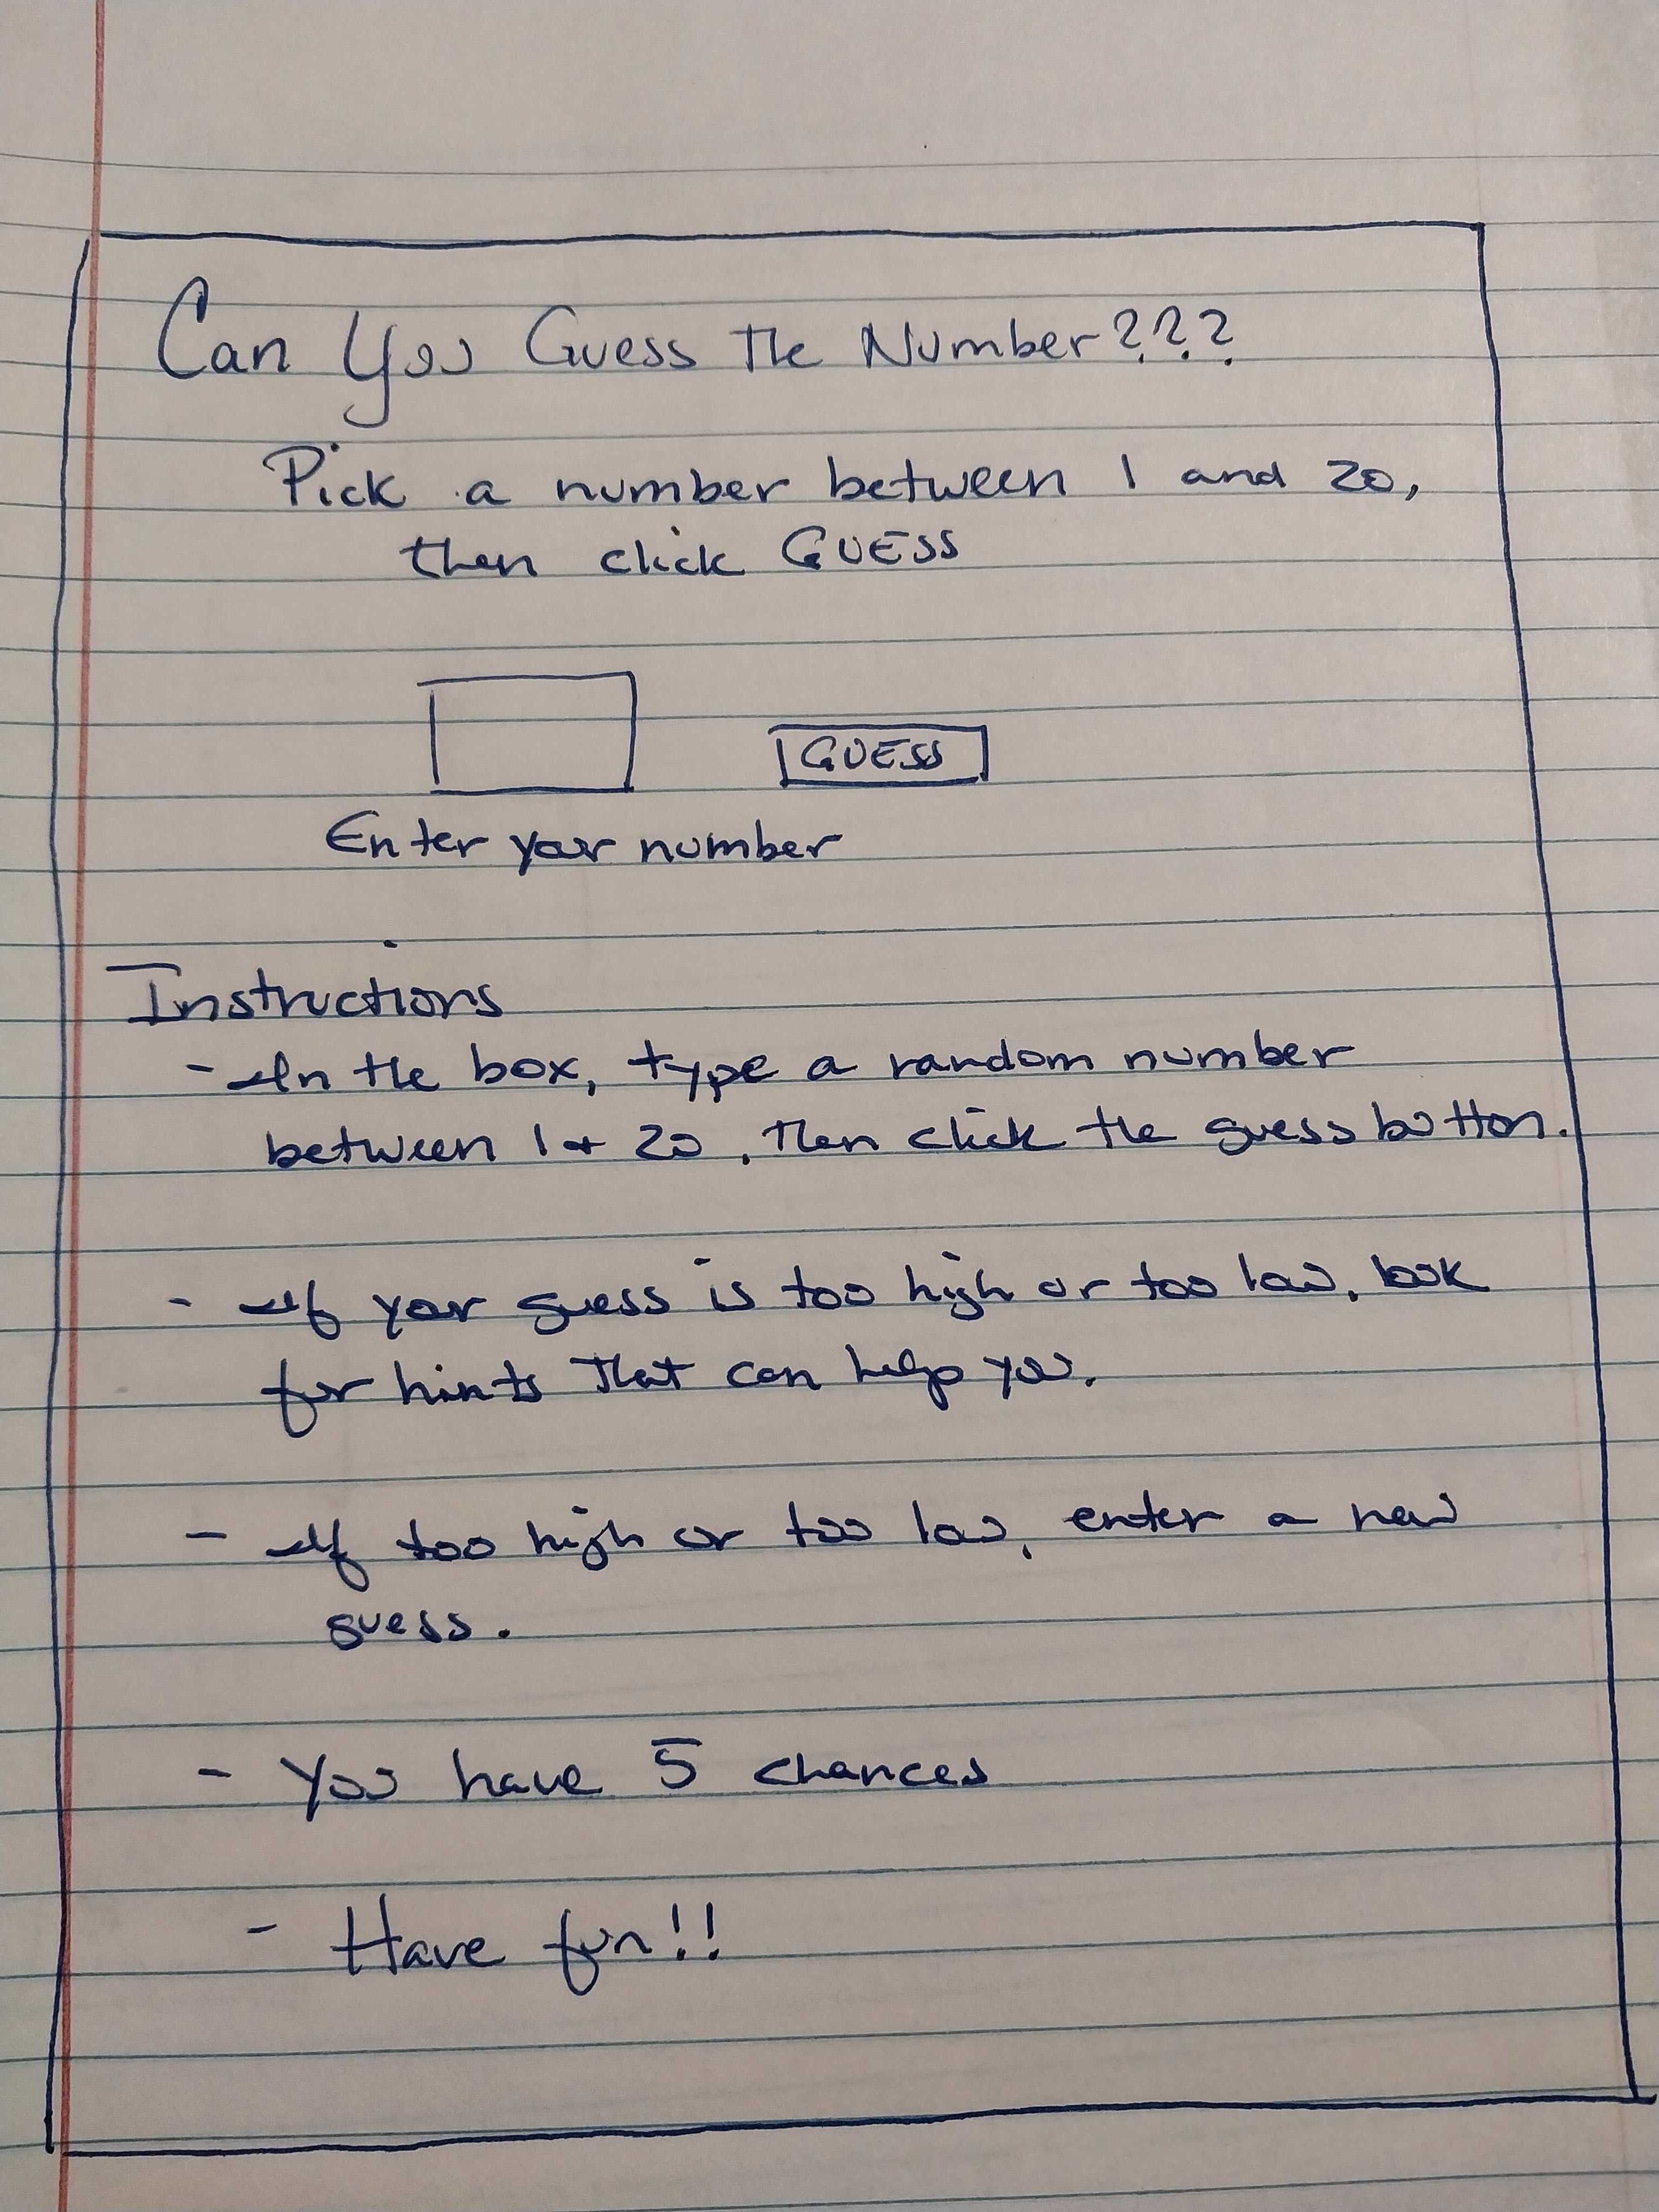 Can You Guess The Number???
Pick a number between 1 and 20,
then click GUESS
GUESS
Enter your number
Instructions
- In the box, type a random number
between 1 + 20. Then click the guess button.
- If your guess is too high or too low, look
for hints that can help you.
- If too high or too low, enter a new
guess.
- You have 5 chances
- Have fun!!